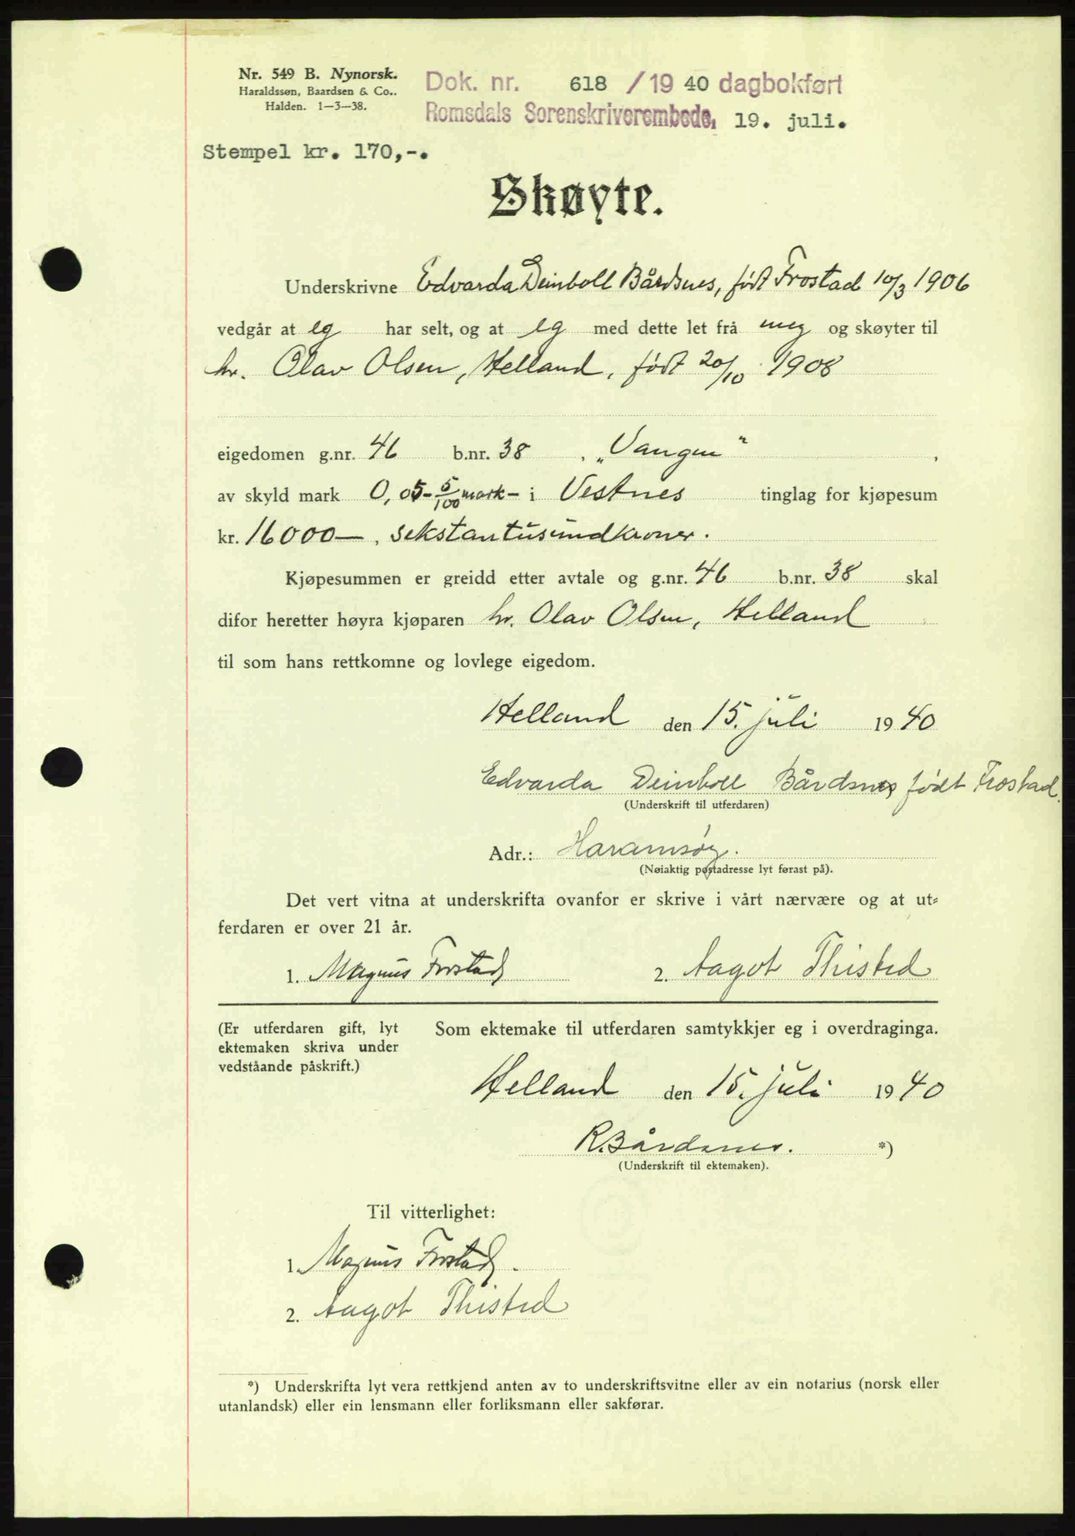 Nr. 549 B. Nynorsk.
Haraldssøn, Baardsen & Co..
Halden. 1-3-38.
Dok. nr. 618 / 19 40 dagbokført
Romsdals Sorenskriverembede, 19. juli.
Stempel kr. 170,-.
Skøyte.
Underskrivne Edvarda Deinboll Bårdsnes, født Frostad 10/3 1906
vedgår at eg har selt, og at eg med dette let frå meg og skøyter til
hr. Olav Olsen, Helland, født 20/10 1908
eigedomen g.nr. 46 b.nr. 38 , „Vangen" ,
av skyld mark 0,05 - 5/100 mark - i Vestnes tinglag for kjøpesum
kr. 16000 — , sekstantusundkroner.
Kjøpesummen er greidd etter avtale og g.nr. 46 b.nr. 38 skal
difor heretter høyra kjøparen hr. Olav Olsen, Helland
til som hans rettkomne og lovlege eigedom.
Helland den 15. juli 19 40
Edvarda Deinboll Bårdsnes født Frostad.
(Underskrift til utferdaren)
Adr.: Haramsøy.
(Nøiaktig postadresse lyt førast på).
Det vert vitna at underskrifta ovanfor er skrive i vårt nærvære og at ut-
ferdaren er over 21 år.
1. Magnus Frostad 2. Aagot Thisted
(Er utferdaren gift, lyt
ektemaken skriva under
vedståande påskrift.)
Som ektemake til utferdaren samtykkjer eg i overdraginga.
Helland den 15. juli 19 40
R. Bårdsnes. *)
(Underskrift til ektemaken).
Til vitterlighet:
1. Magnus Frostad.
2. Aagot Thisted
*) Underskrifta lyt vera rettkjend anten av to underskriftsvitne eller av ein notarius (norsk eller
utanlandsk) eller ein lensmann eller forliksmann eller sakførar.